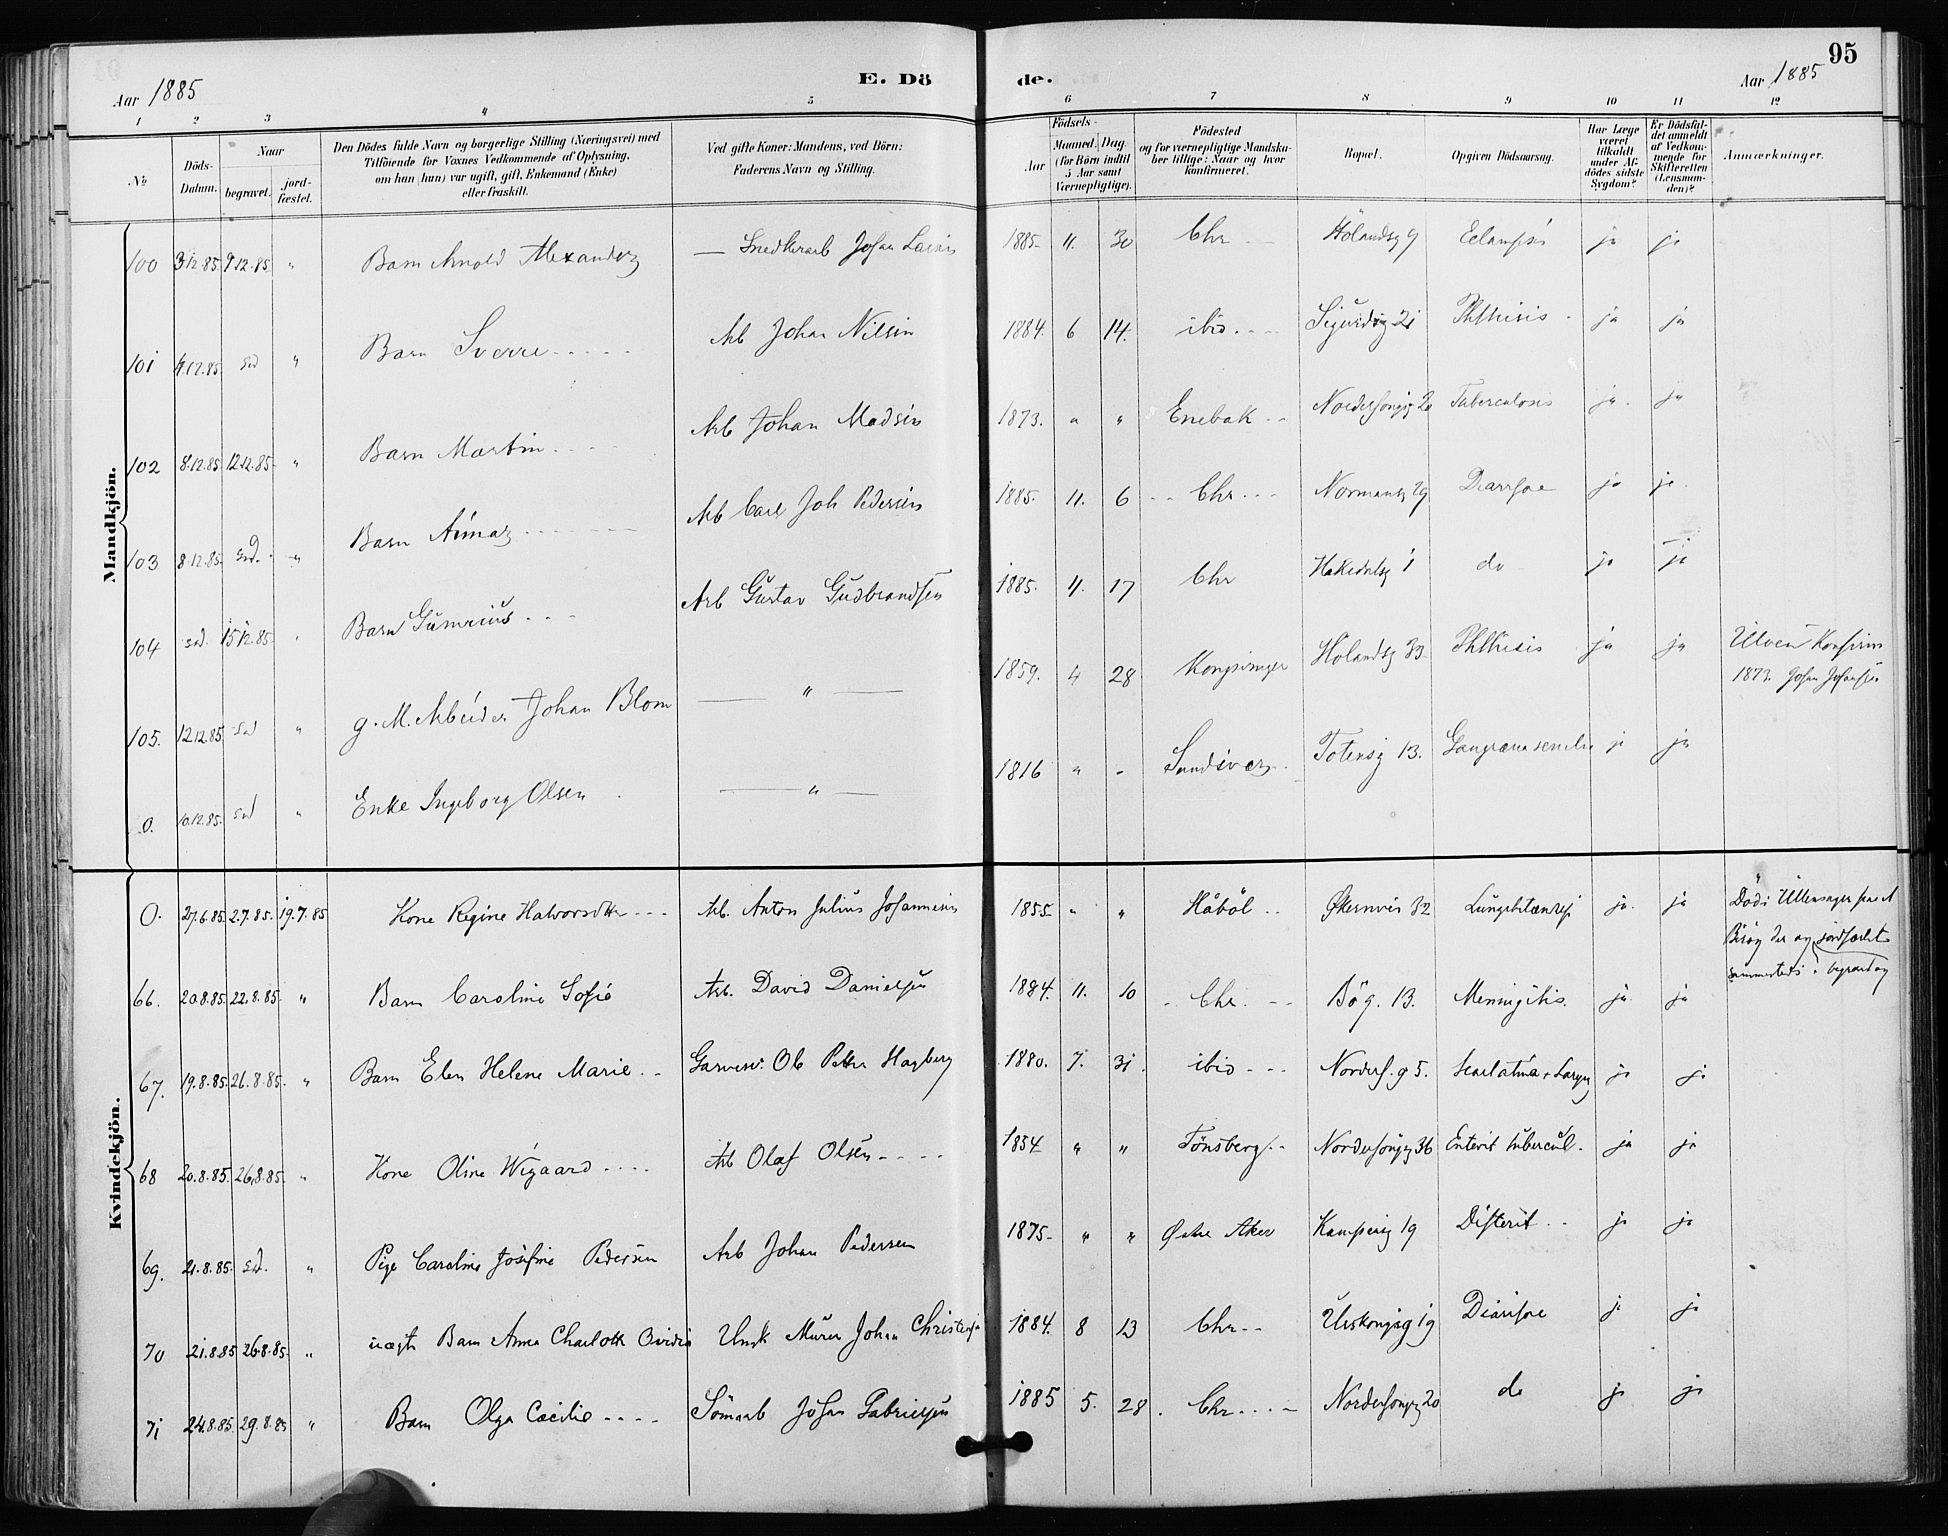 95
Aar 1885 E. Dö de. Aar 1885
1 2 3 4 5 6 7 8 9 10 11 12
No Döds-Datum. Naar begravet. jord-fæstet. Den Dödes fulde Navn og borgerlige Stilling (Næringsvei) med Tilföiende for Voxnes Vedkommende af Oplysning, om han (hun) var ugift, gift, Enkemand (Enke) eller fraskilt. Ved gifte Koner: Mandens, ved Börn: Faderens Navn og Stilling. Födsels- Aar Maaned. Dag (for Börn indtil 5 Aar samt Værnepligtige). Födested og for værnepligtige Mandskaber tillige: Naar og hvor konfirmeret. Bopæl. Opgiven Dödsaarsag. Har Læge været tilkaldt under Afdödes sidste Sygdom? Er Dödsfaldet anmeldt af Vedkommende for Skifteretten (Lensmanden)? Anmærkninger.
Mandkjön.
100 3.12.85 9.12.85 " Barn Arnold Alexander — Snedkerarb Johan 1885 11. 30 Chr Hölandsg 9 Eclampsi ja ja
101 4.12.85 sd " Barn Sverre Arb Johan Nilsen 1884. 6 14. ibid. Sigurdsg 21 Phthisis ja ja
102 8.12.85 12.12.85 " Barn Martin Arb Johan Madsen 1873. " " Enebak Tuberculosis ja ja
103 8.12.85 sd. " Barn Arb Carl Joh Pedersen 1885. 11. 6 Chr Normansg 29 Diarrhoe ja ja
104 sd. 15.12.85 Barn Arb Gustav Gudbrandsen 1885. 17 Chr Hakedalsg 1 do ja ja
105. 12.12.85 sd " g. M. Arbeider Johan Blom — " — 1859. 4 28 Kongsvinger Hölandsg 33 Phthisis ja ja Konfirm 1873. Johan
0. 10.12.85. sd " Enke Ingeborg Olsen — " — 1816 " - Totensg 13. Gangræna senilis ja ja
Kvindekjön.
0. 27.6.85 2.7.85. 19.7.85 Kone Regine Halvorsdtr Arb. Anton Julius Johannesen 1855 " " Håböl Økernvei 32 Lungebetændelse ja ja Död i Ullensager paa et Besög der og jordfæstet
66. 20.8.85 22.8.85. " Barn Caroline Sofie Arb. David Danielsen 1884. 11. 10 Chr. Bög. 13. Menningitis. ja ja
67. 19.8.85. 21.8.85. " Barn Elen Helene Marie Garversv. Ole Petter Hagberg 1880. 7. 31. ibid Norderh.g 5. Scarlatina + ja ja
68 20.8.85. 26.8.85. " Kone Oline Wigaard Arb Olaf Olsen 1854 " " Tønsberg Enterit tubercul. ja ja
69. 21.8.85. sd. " Pige Caroline Josefine Pedersen Arb Johan Pedersen 1875 " " Østre Aker Kampensg 19 Difterit ja ja
70 21.8.85 26.8.85. " uægte Barn Anna Charlotte Ovidia Murer Johan Christensen 1884. 8 13 Chr Urskougsg 19 Diarrhoe ja ja
71 24.8.85. 29.8.85 " Barn Olga Cæcilie Sömarb Johan Gabrielsen 1885 5. 28. Chr do ja ja